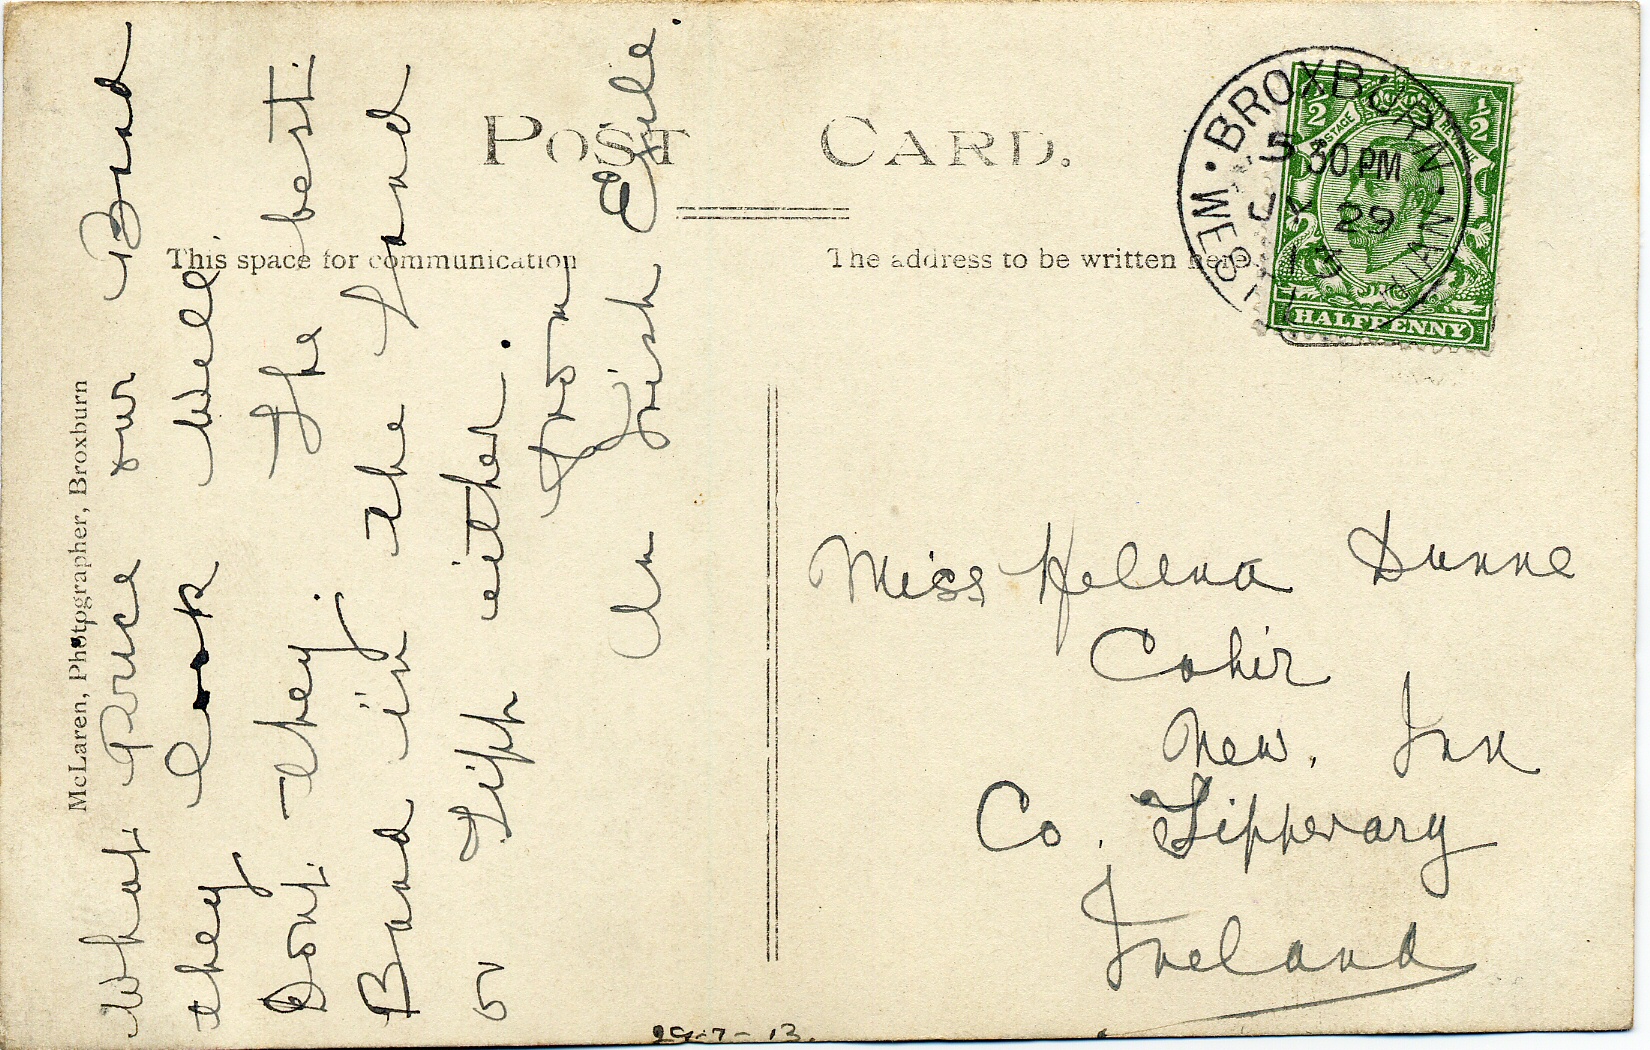 POST CARD.
This space for communication
The address to be written here.
McLaren, Photographer, Broxburn
What Price our Band
they look well
Dont they. The best.
Band in the land
or Tipp either.
From
An Irish Exile.
BROXBURN.
5.30 PM
JY 29
13
WEST
½
½
POSTAGE
REVENUE
HALFPENNY
Miss Helena Dunne
Cahir
New. Inn
Co. Tipperary
Ireland
29-7-13.